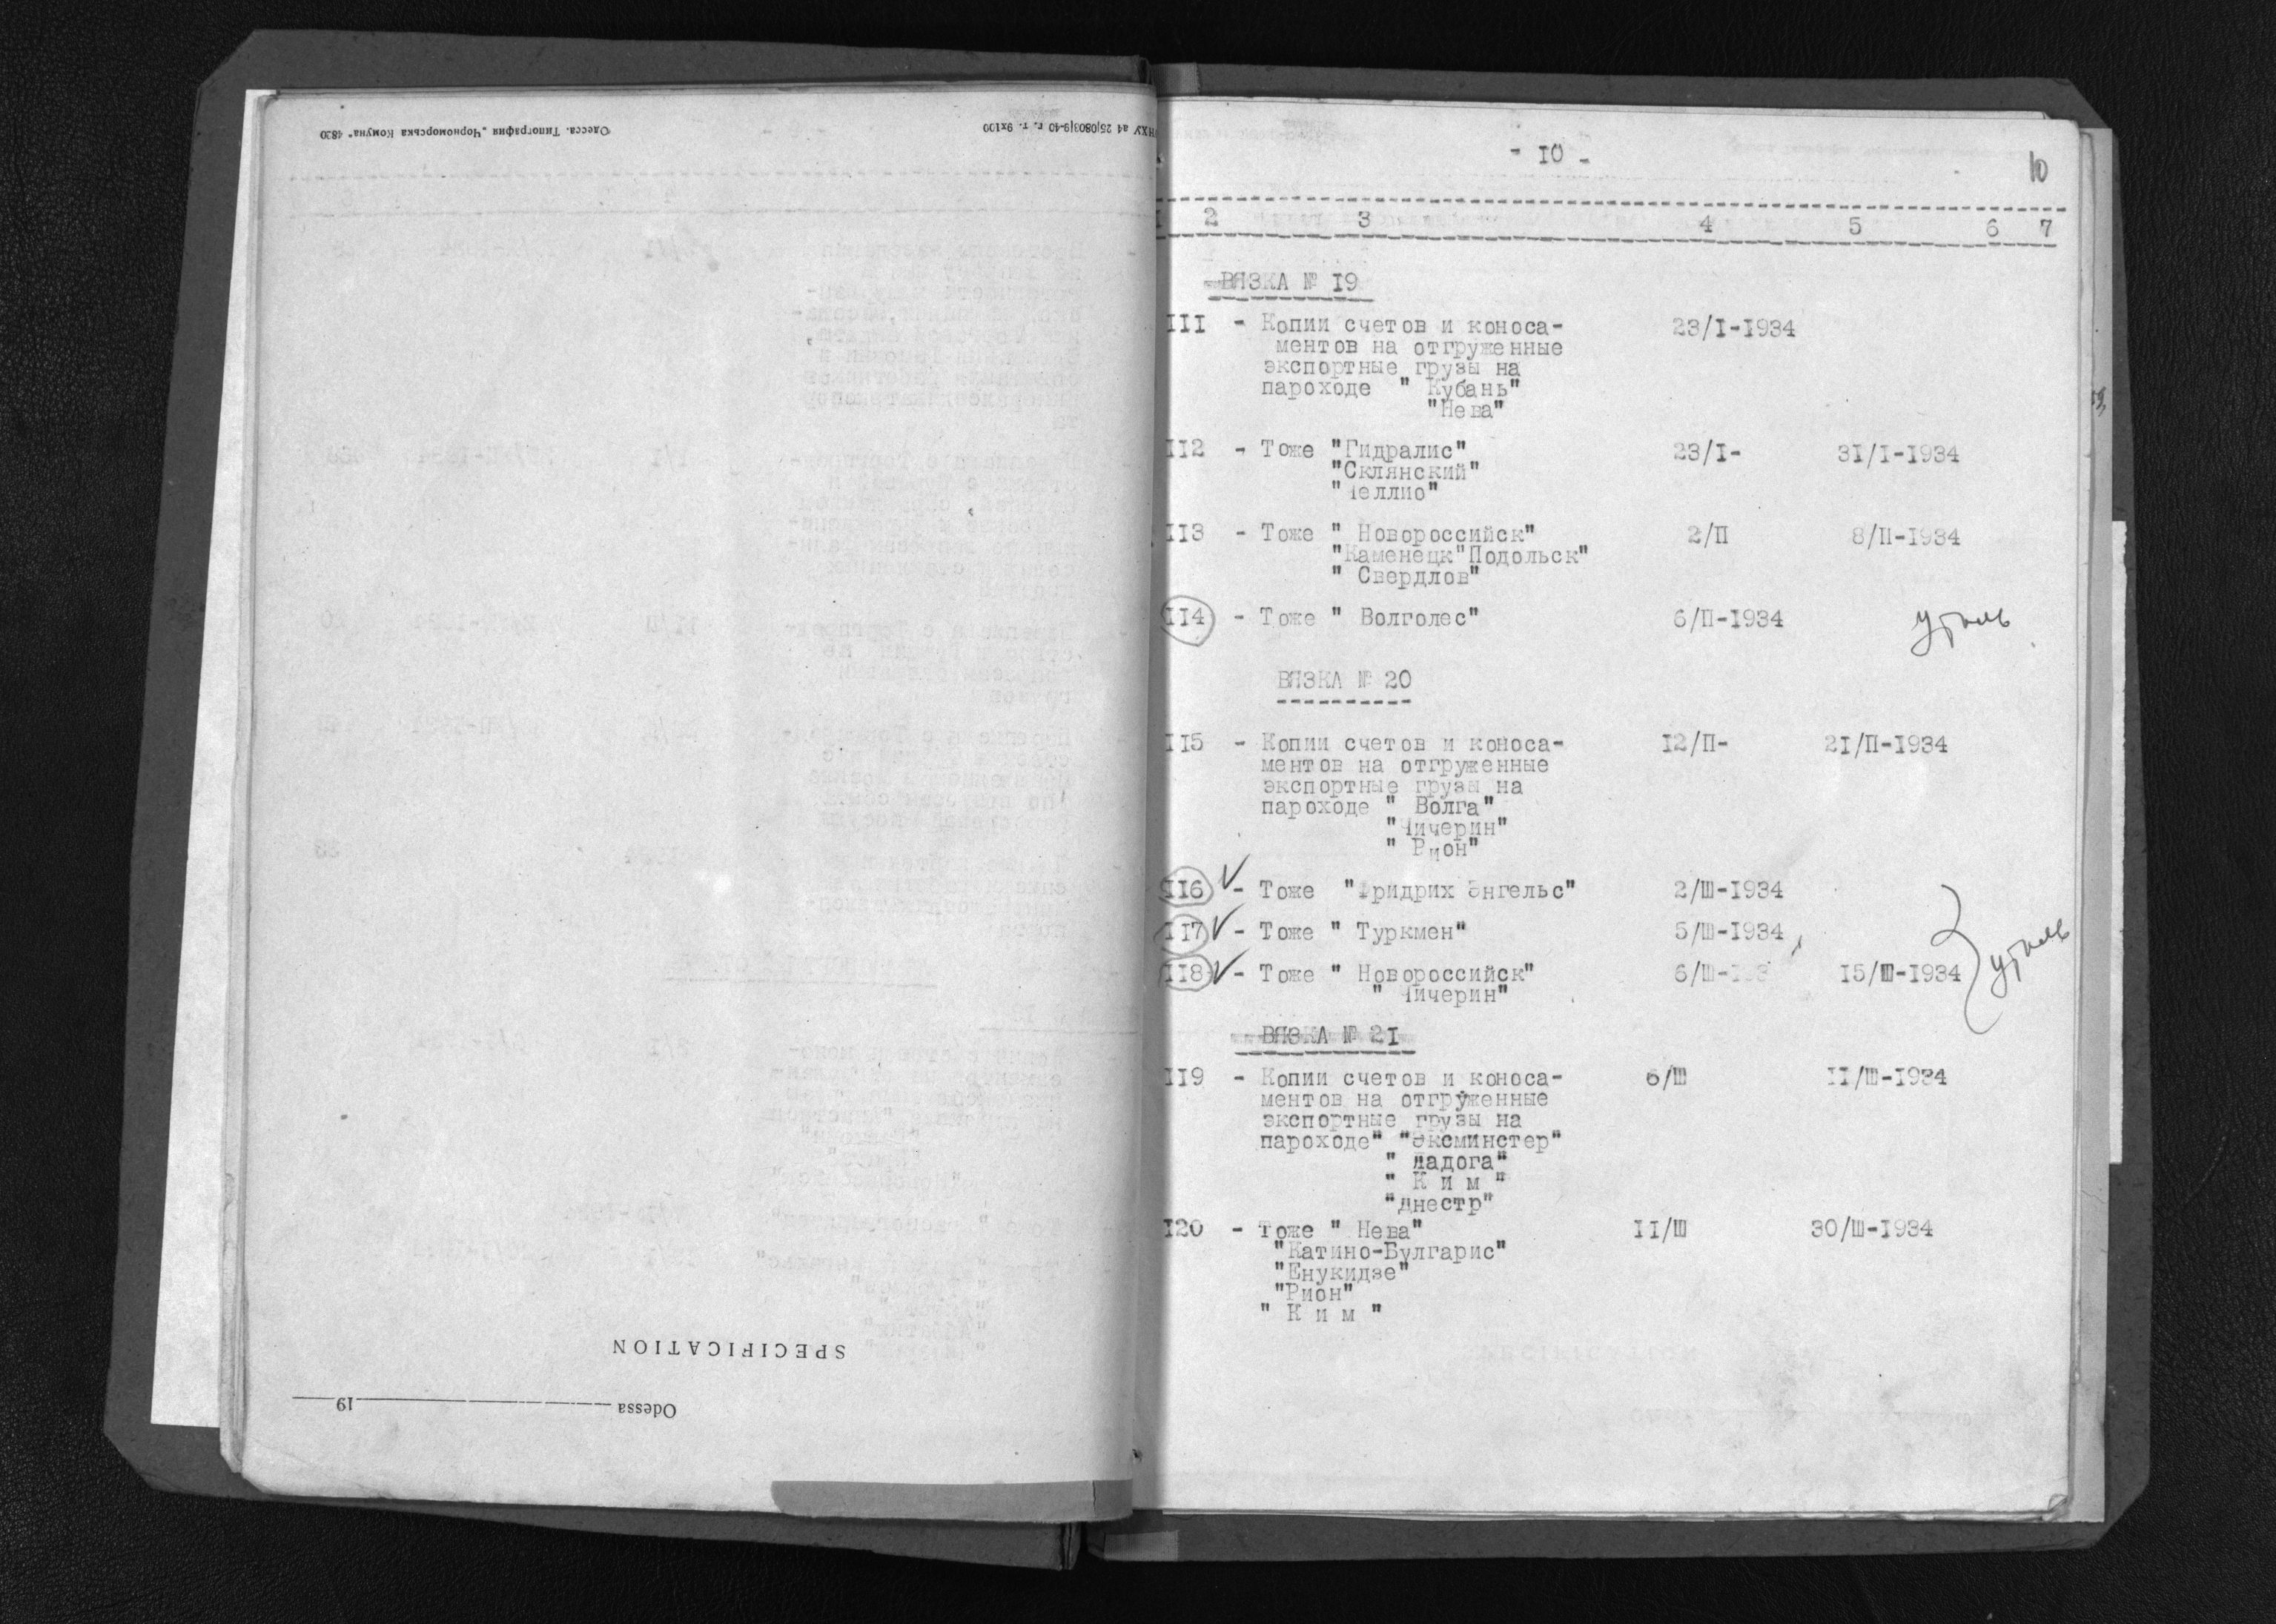 Одесса. Типография „Чорноморська Комуна" 4820
УНХУ а4 25|0803|9-40 г. т. 9х100
SPECIFICATION
Odessa 19
- 10 -
10
1 2 3 4 5 6 7
ВЯЗКА № 19
III - Копии счетов и коноса- 23/I-1934
ментов на отгруженные
экспортные грузы на
пароходе " Кубань"
"Нева"
II2 - Тоже "Гидралис" 23/I- 3I/I-1934
"Склянский"
"Челлио"
II3 - Тоже " Новороссийск" 2/П 8/П-1934
"Каменецк"Подольск"
" Свердлов"
II4 - Тоже " Волголес" 6/П-1934 утиль
ВЯЗКА № 20
II5 - Копии счетов и коноса- I2/П- 2I/П-1934
ментов на отгруженные
экспортные грузы на
пароходе " Волга"
"Чичерин"
" Рион"
II6 - Тоже "Фридрих Энгельс" 2/Ш-1934
II7 - Тоже " Туркмен" 5/Ш-1934
II8 - Тоже " Новороссийск" 6/Ш-193 I5/Ш-1934 утиль
" Чичерин"
ВЯЗКА № 2I
II9 - Копии счетов и коноса- 6/Ш II/Ш-1934
ментов на отгруженные
экспортные грузы на
пароходе" "Эксминстер"
" Ладога"
" К и м "
"Днестр"
I20 - Тоже " Нева" II/Ш 30/Ш-1934
"Катино-Булгарис"
"Енукидзе"
"Рион"
" К и м "